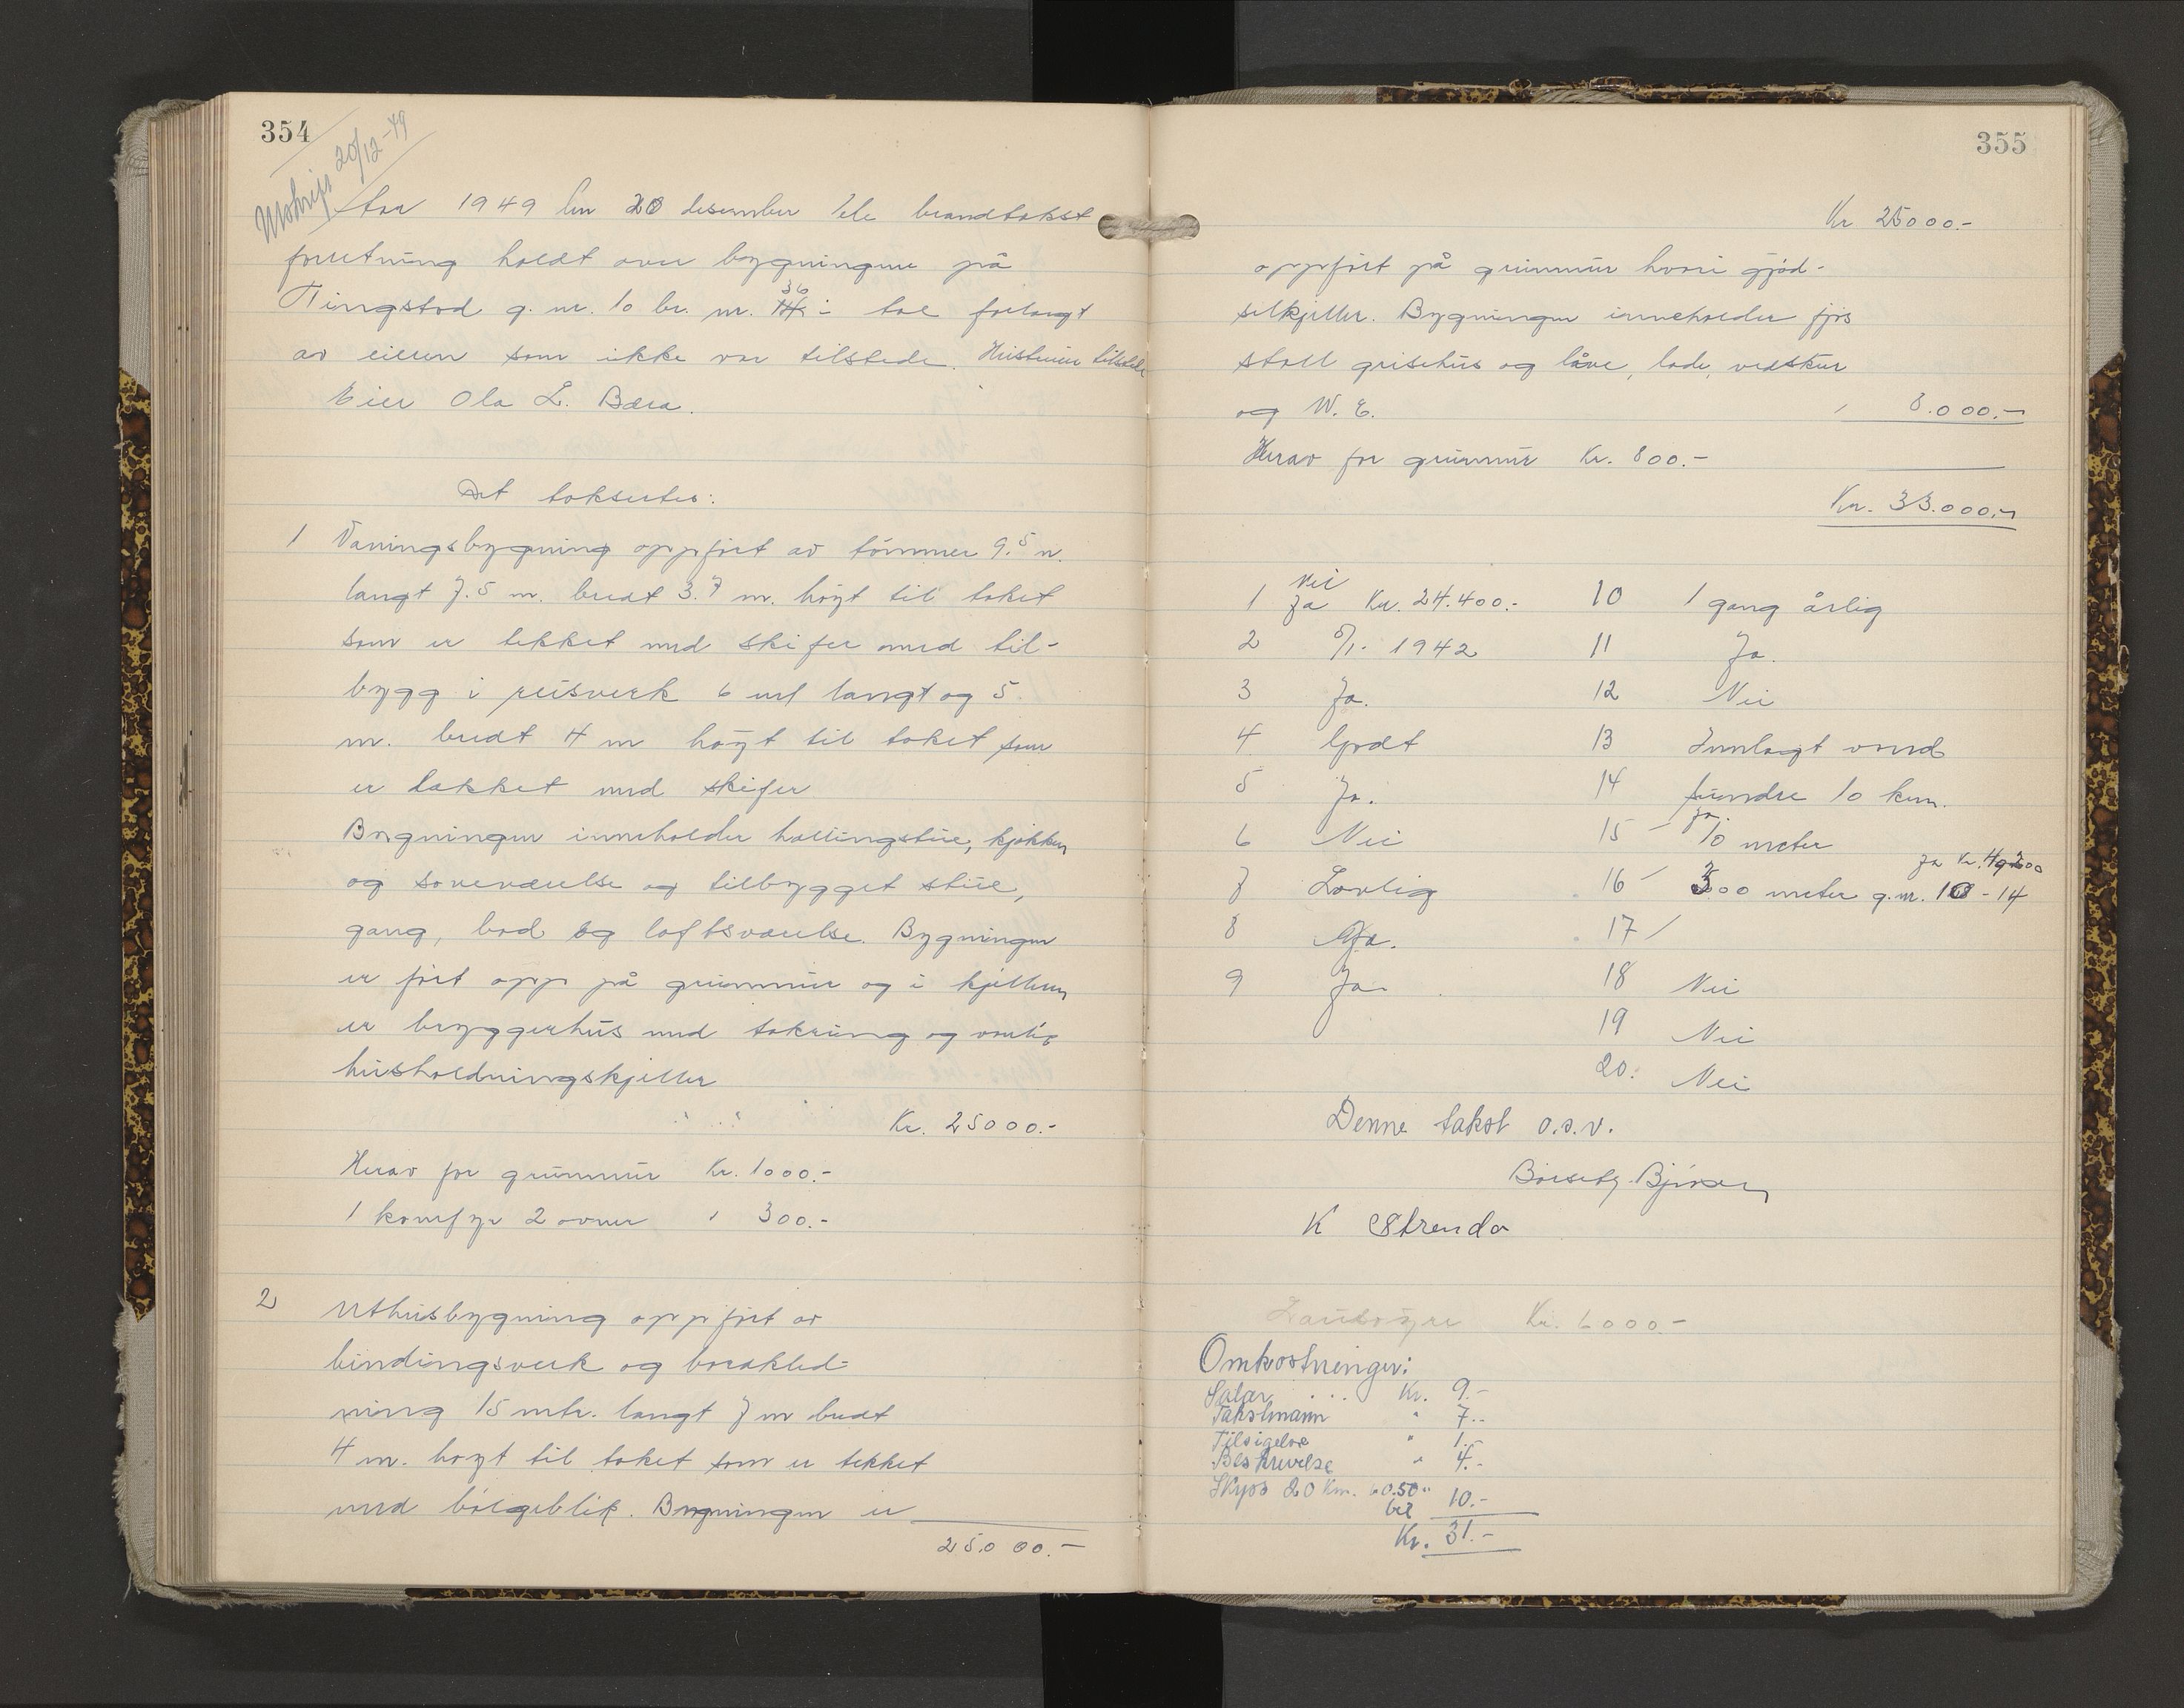 354
Utskrift 20/12-49
Aar 1949 den 20 desember ble brandtakst
forretning holdt over bygningene på
Tingstad g. nr. 10 br. nr. 36 i tal forlangt
av eieren som ikke var tilstede. Hustruen tilstede
Eier Ola L. Bæra.
Det takseres:
1 Vaningsbygning oppført av tömmer 9.5 m.
langt 7.5 m. bredt 3.7 m. høyt til taket
som er tekket med skifer med til-
bygg i reisverk 6 m langt og 5
m. bredt 4 m høyt til taket som
er takket med skifer
Bygningen inneholder hallingstue, kjøkken
og soveværelse og tilbygget stue,
gang, bod og loftsværelse. Bygningen
er ført opp på grunnmur og i kjelleren
er bryggerhus med bakerovn og vanlig
husholdningskjeller
Kr. 25000.-
Herav for grunnmur Kr. 1000.-
1 komfyr 2 ovner " 300.-
2 Uthusbygning oppført av
bindingsverk og bordkled-
ning 15 mtr. langt 7 m bredt
4 m. høyt til taket som er tekket
med bölgeblik. Bygningen er
25.000.-
355
Kr 25000.-
oppført på grunnmur hvori gjød-
selkjeller. Bygningen inneholder fjøs
stall grisehus og låve, lade, vedskur
og W. C. " 8.000.-
Herav for grunnmur Kr. 800.-
Kr. 33.000.-
1 Nei Ja Kr. 24.400.- 10 1 gang årlig
2 5/1. 1942 11 Ja.
3 Ja. 12 Nei
4 Godt 13 Innlagt vand
5 Ja. 14 Mindre 10 km.
6 Nei 15 - ja 10 meter
7 Lovlig 16 - 300 meter g.nr. 10 - 14
8 Ja. 17 /
9 Ja. 18 Nei
19 Nei
20. Nei
Denne takst o.s.v.
K Strenda
Kr. 6000.-
Omkostninger:
Salær ... Kr. 9.-
Takstmann " 7.-
Tilsigelse " 1.-
Beskrivelse " 4.-
Skyss 20 Km. a 0.50 " 10.-
bil
Kr. 31.-